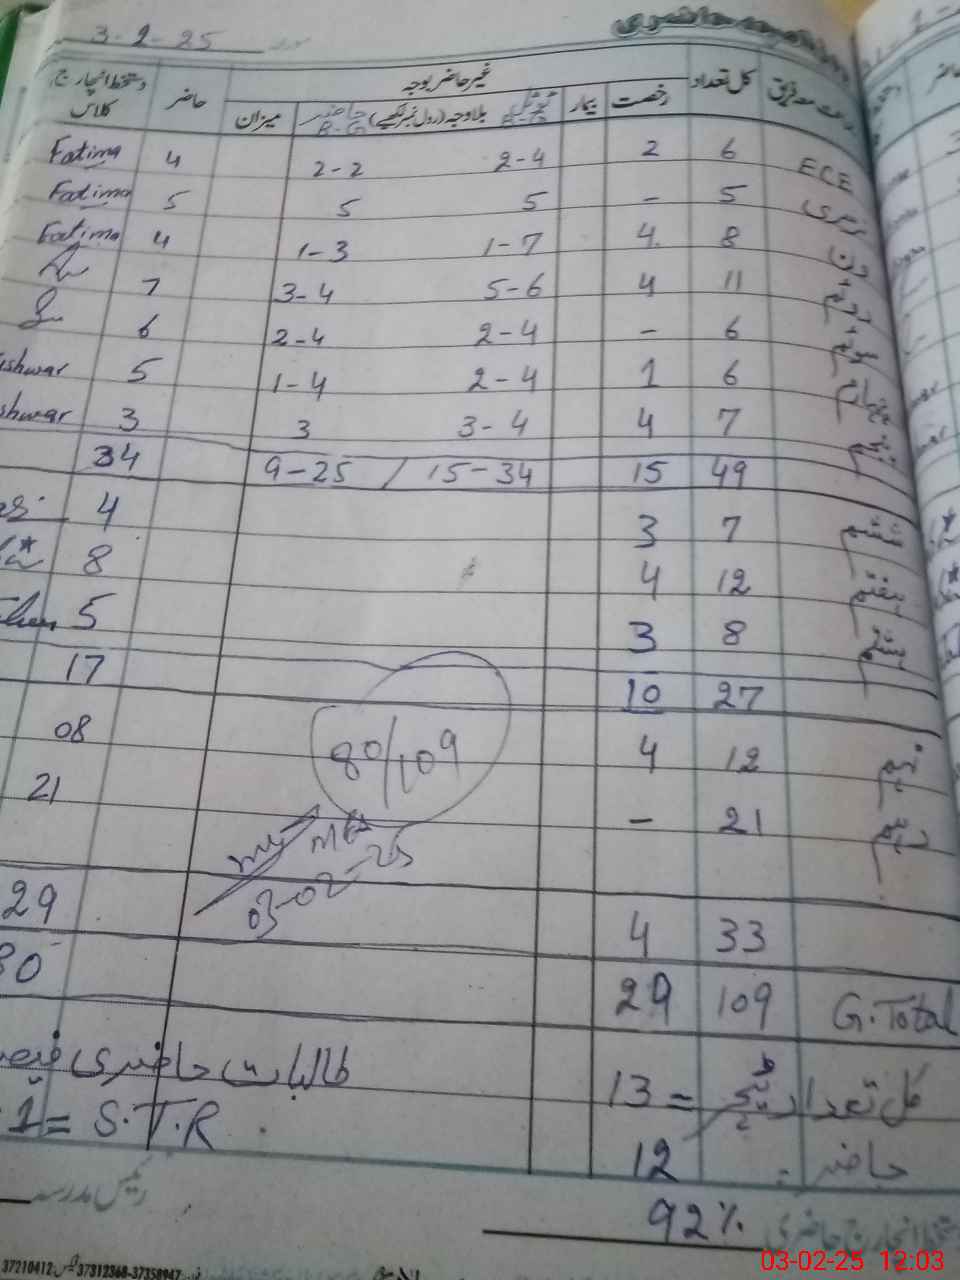 3-2-25
غیر حاضر بوجہ
کل تعداد رخصت بیمار بلاوجہ (رول نمبر لکھیے) حاضر B-G میزان حاضر دستخط انچارج کلاس
ECE 6 2 2-4 2-2 4 Fatima
نرسری 5 - 5 5 5 Fatima
8 4 1-7 1-3 4 Fatima
دوئم 11 4 5-6 3-4 7
سوئم 6 - 2-4 2-4 6
چہارم 6 1 2-4 1-4 5 shwar
پنجم 7 4 3-4 3 3 shwar
49 15 15-34 / 9-25 34
ششم 7 3 4
ہفتم 12 4 8
ہشتم 8 3 5
27 10 17
نہم 12 4 08
دہم 21 - 21
80/109
03-02-25
33 4 29
G.Total 109 29 80
طالبات حاضری
کل تعداد = 13
1 = S.T.R
حاضر 12
92%
رئیس مدرسہ
دستخط انچارج حاضری
37210412 37312368-37358947
03-02-25 12:03